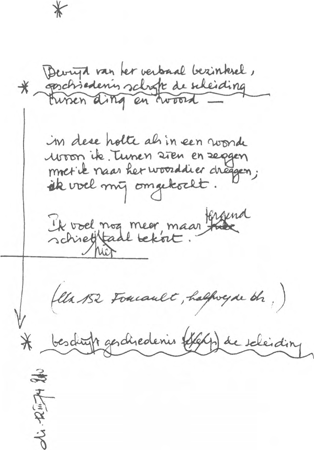 *
Bevrijd van het verbaal bezinksel,
* geschiedenis schrijft de scheiding
tussen ding en woord —
in deze holte als in een wonde
woon ik. Tussen zien en zeggen
moet ik naar het woorddier dreggen;
ik voel mij omgekocht.
Ik voel nog meer, maar tergend
schiet taal tekort.
(blz 152 Foucault, halfweg de blz.)
* beschrijft geschiedenis de scheiding